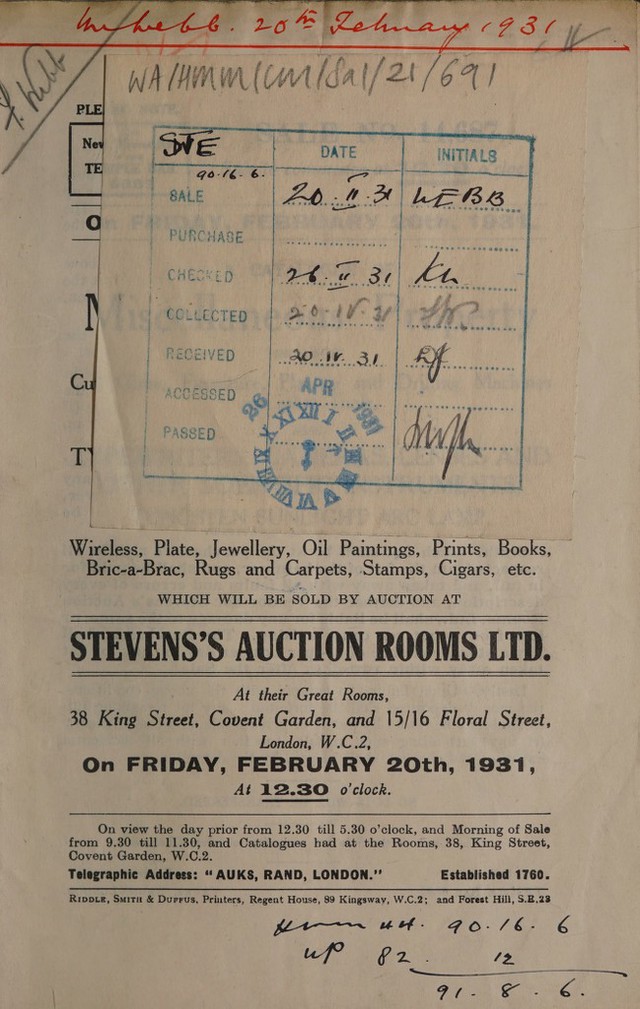 Mr Webb. 20th February 1931
F. Webb
WA/HMM/CM/Sal/21/691
PLE
Nev
TE
STE DATE INITIALS
90.16.6.
SALE 20.II.31 WEBB
PURCHASE
CHECKED 26.II.31
COLLECTED 20.IV.31
RECEIVED 20.IV.31
ACCESSED
PASSED
26 APR 1931
XII I II III IIII V VI VII VIII IX X XI
O
M
Cu
T
Wireless, Plate, Jewellery, Oil Paintings, Prints, Books,
Bric-a-Brac, Rugs and Carpets, Stamps, Cigars, etc.
WHICH WILL BE SOLD BY AUCTION AT
STEVENS'S AUCTION ROOMS LTD.
At their Great Rooms,
38 King Street, Covent Garden, and 15/16 Floral Street,
London, W.C.2,
On FRIDAY, FEBRUARY 20th, 1931,
At 12.30 o'clock.
On view the day prior from 12.30 till 5.30 o'clock, and Morning of Sale
from 9.30 till 11.30, and Catalogues had at the Rooms, 38, King Street,
Covent Garden, W.C.2.
Telegraphic Address: "AUKS, RAND, LONDON." Established 1760.
RIDDLE, SMITH & DUFFUS, Printers, Regent House, 89 Kingsway, W.C.2; and Forest Hill, S.E.23
90.16.6
82. 12
91.8.6.